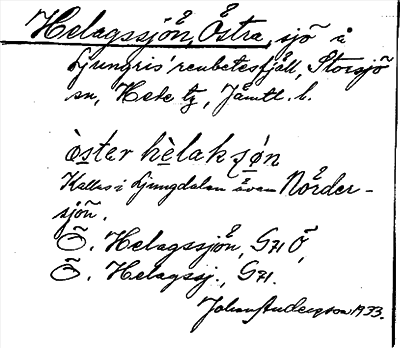 Helagssjön, Östra, sjö i
Ljungris' renbetesfjäll, Storsjö
sn, Hede tg, Jämtl. l.
òster hèlakʂǿn
Kallas i Ljungdalen även Nörder-
sjön.
Ö. Helagssjön, G71 Ö,
Ö. Helagssj., G71.
Johan Anderson 1933.